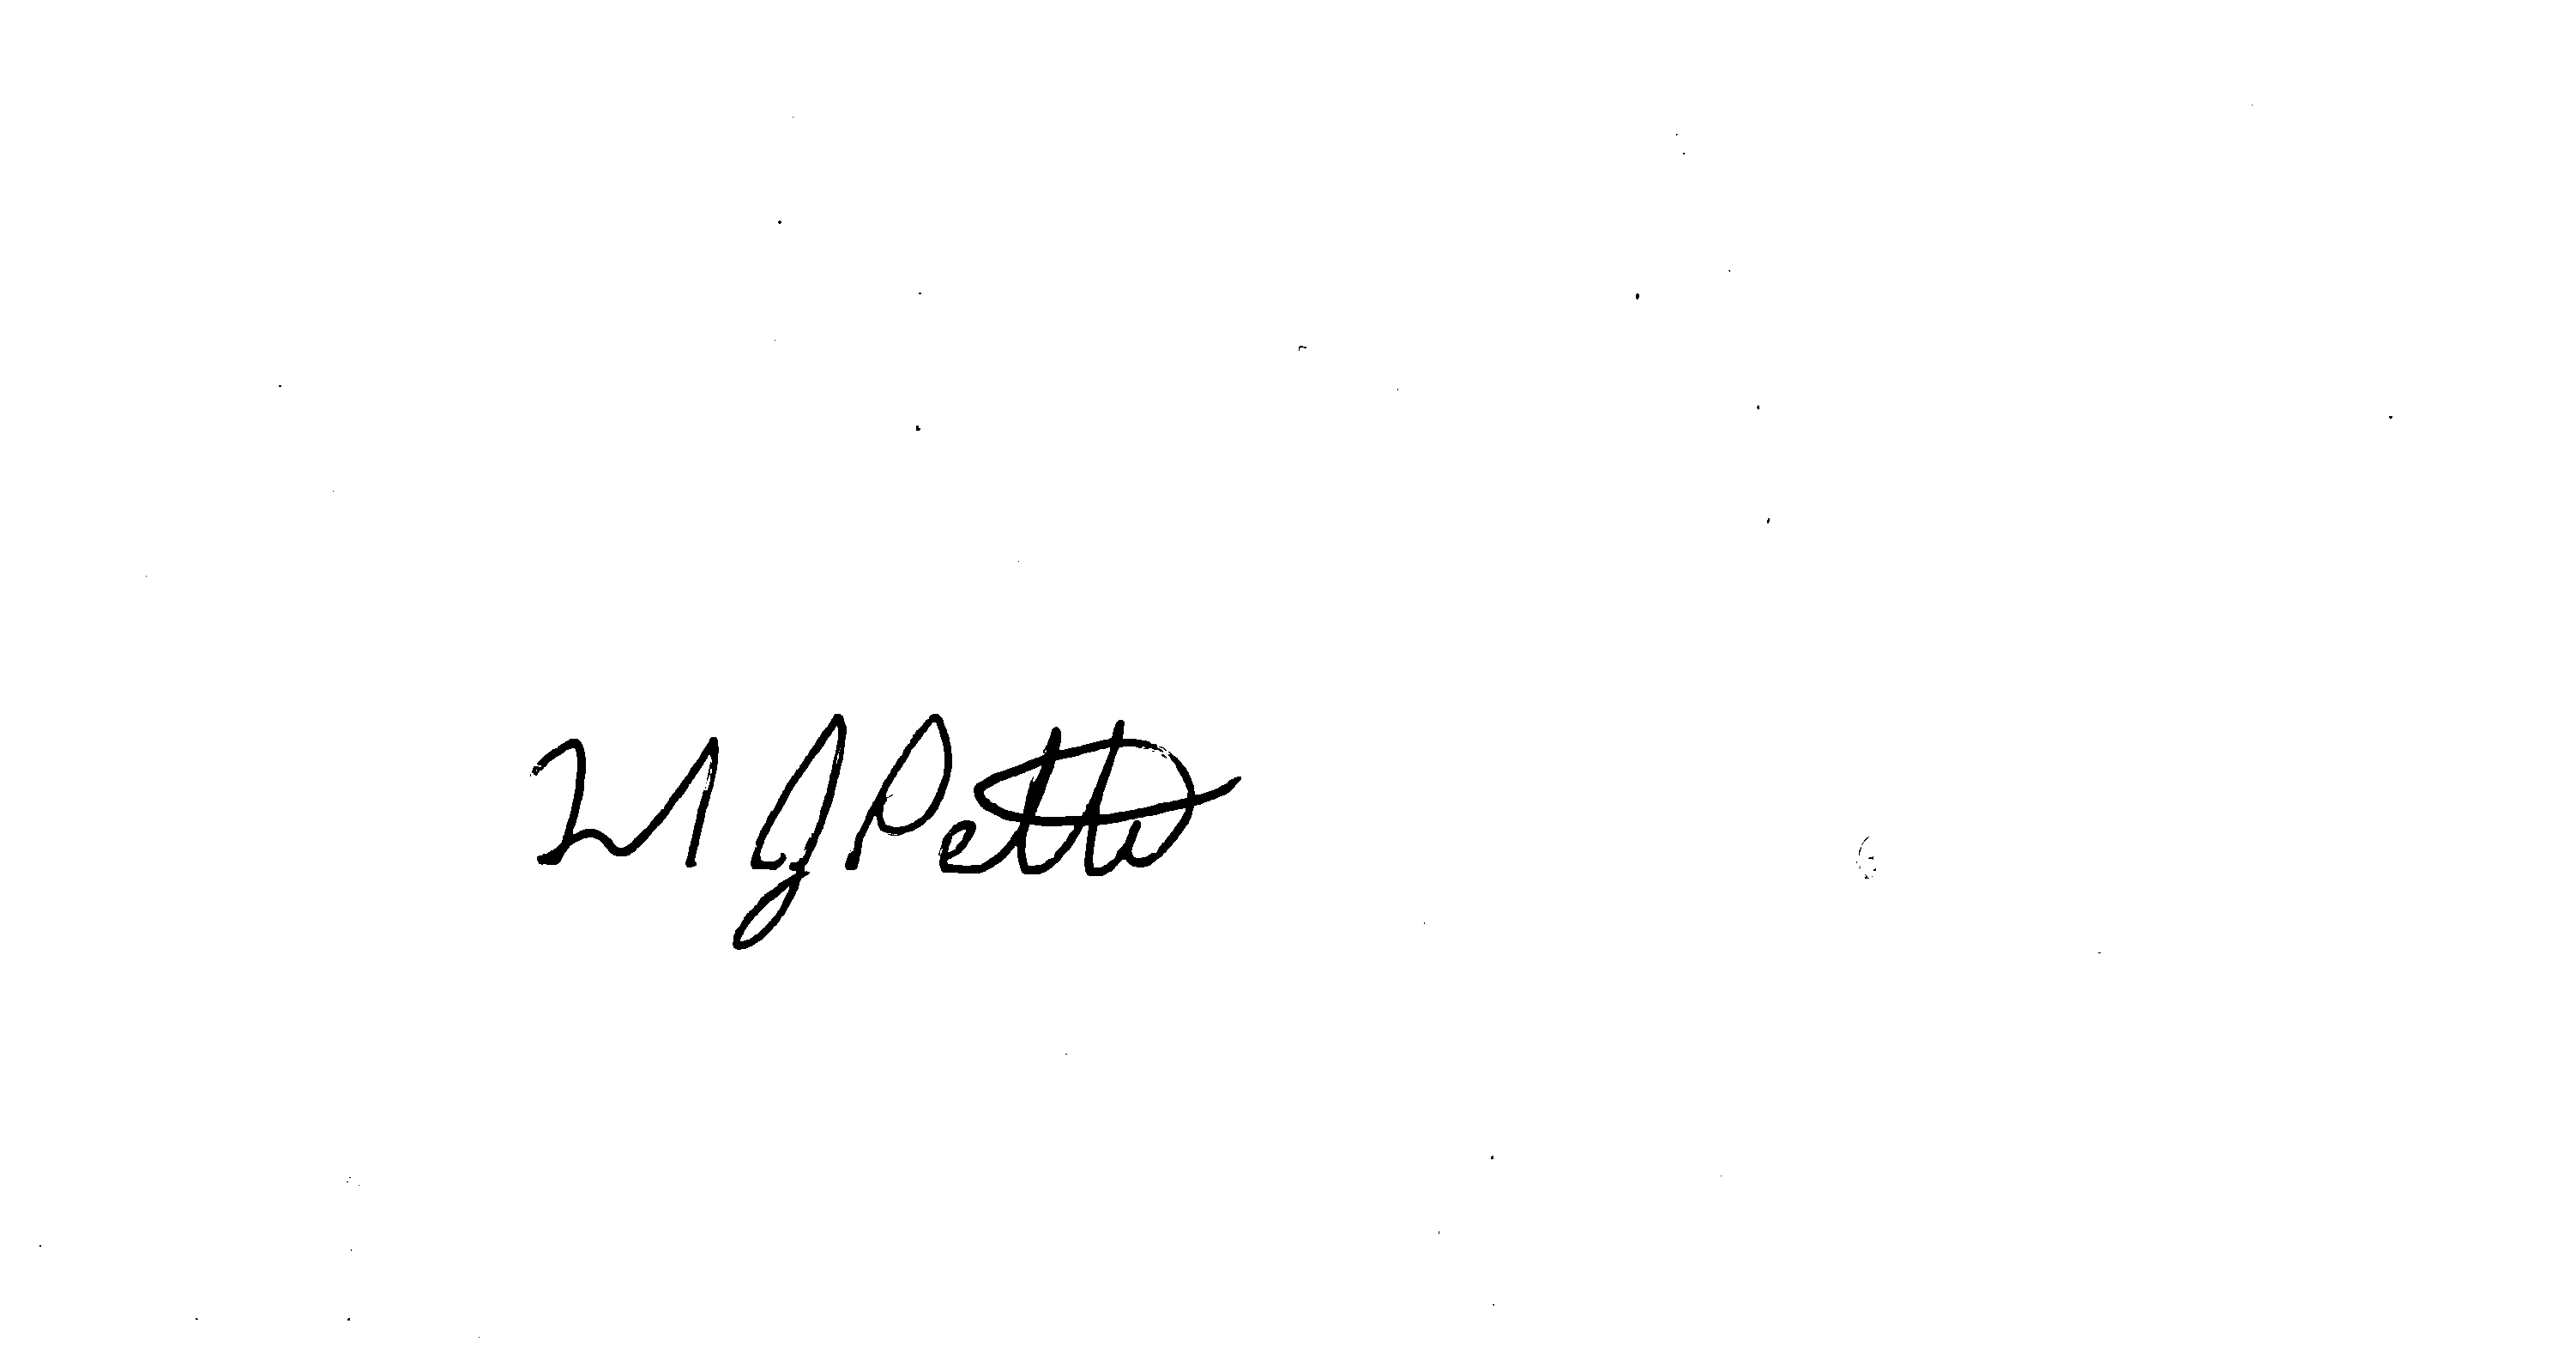 M J Pettit